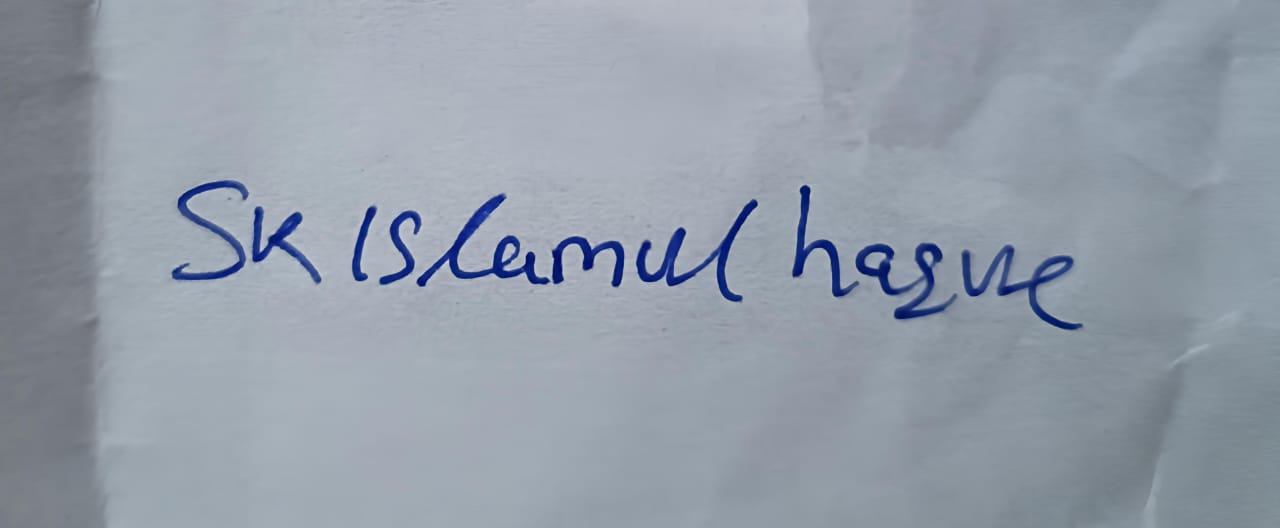 SK Islamul haque